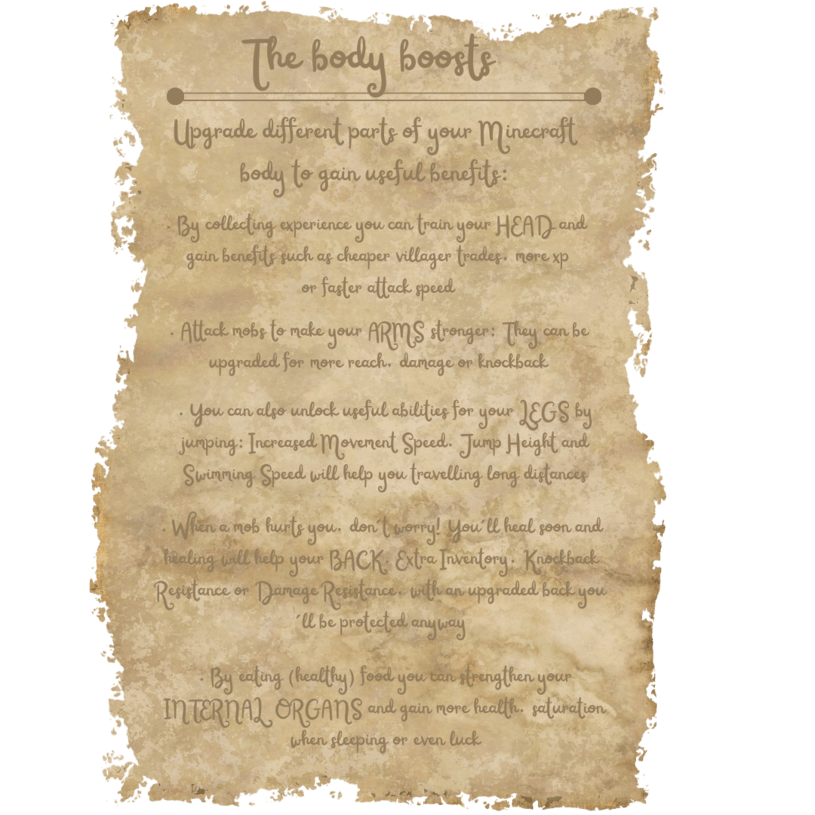 The body boosts
Upgrade different parts of your Minecraft
body to gain useful benefits:
. By collecting experience you can train your HEAD and
gain benefits such as cheaper villager trades, more xp
or faster attack speed
. Attack mobs to make your ARMS stronger: They can be
upgraded for more reach, damage or knockback
. You can also unlock useful abilities for your LEGS by
jumping: Increased Movement Speed, Jump Height and
Swimming Speed will help you travelling long distances
. When a mob hurts you, don´t worry! You´ll heal soon and
healing will help your BACK: Extra Inventory, Knockback
Resistance or Damage Resistance, with an upgraded back you
´ll be protected anyway
. By eating (healthy) food you can strengthen your
INTERNAL ORGANS and gain more health, saturation
when sleeping or even luck